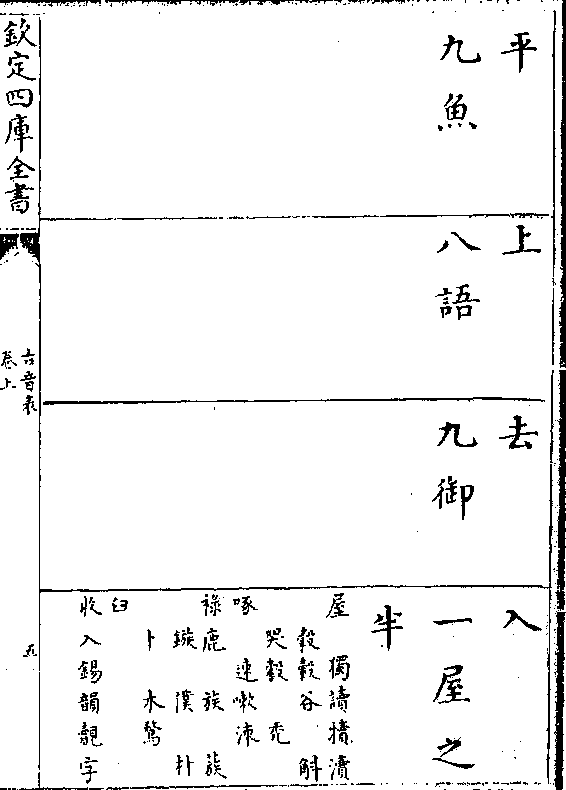 平
九魚
上
八語
去
九御
入
一屋之
半
屋 獨讀瀆
穀轂谷 斛
哭 禿
啄 速嗽涑
祿鹿 族 蔟
鏃 濮 扑
卜 木鶩
臼
收入錫韻覿字
欽定四庫全書
古音表
卷上
五